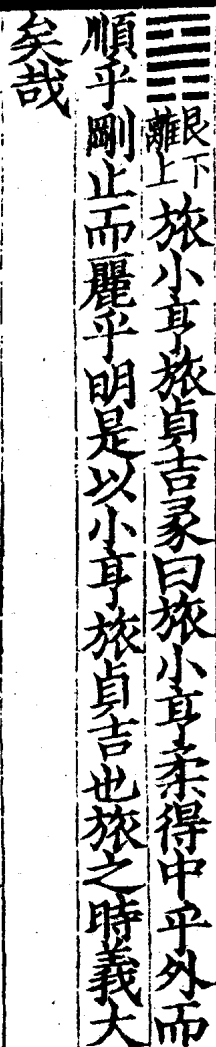 ䷷艮下離上旅小亨旅貞吉彖曰旅小亨柔得中乎外而
順乎剛止而麗乎明是以小亨旅貞吉也旅之時義大
矣哉